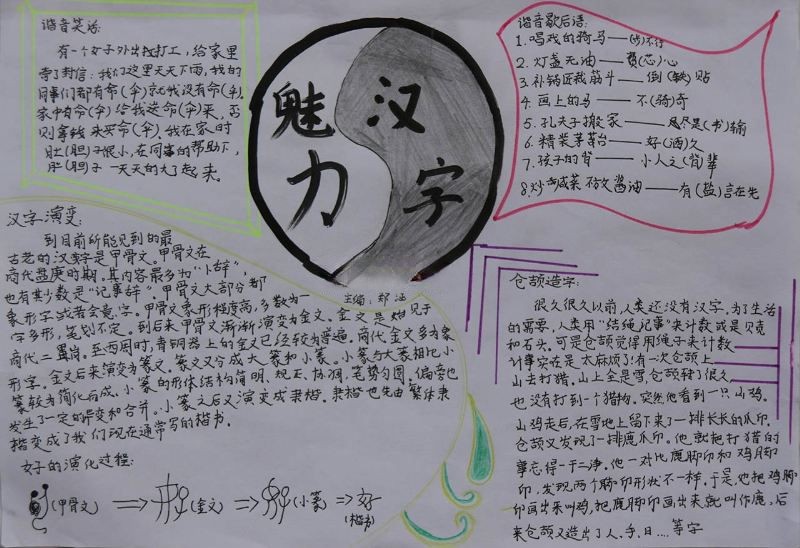 谐音笑话:
有一个女子外出找打工,给家里
寄了封信:我们这里天天下雨,我的
同事们都有命(伞),就我没有命(伞),
家中有命(伞)给我送命(伞)来,否
则拿钱来买命(伞)。我在家时
肚(胆)子很小,在同事的帮助下,
肚(胆)子一天天的大了起来。
魅力
汉字
主编:郑
谐音歇后语:
1.唱戏的骑马——(步)不行
2.灯盏无油——费(芯)心
3.补锅匠栽筋斗——倒(铁)贴
4.画上的马——不(骑)奇
5.孔夫子搬家——尽是(书)输
6.精装茅苔——好(酒)久
7.孩子的背——小人之(背)辈
8.炒咸菜不放酱油——有(盐)言在先
汉字演变:
到目前所能见到的最
古老的汉字是甲骨文。甲骨文在
商代盘庚时期,其内容最多为“卜辞”,
也有其少数是“记事辞”。甲骨文大部分都
象形字或者会意字。甲骨文象形程度高,多数为一
字多形,笔划不定。到后来甲骨文渐渐演变为金文。金文是始见于
商代二里岗。至西周时,青铜器上的金文已经较为普遍。商代金文多为象
形字。金文后来演变为篆文。篆文又分成大篆和小篆。小篆与大篆相比小
篆较为简化而成。小篆的形体结构简明、规正、协调,笔势匀圆,偏旁也
发生了一定的异变和合并。小篆之后又演变成隶楷。隶楷也先由繁体隶
楷变成了我们现在通常写的楷书。
好的演化过程:
(甲骨文) ⟹ (金文) ⟹ (小篆) ⟹ 好
(楷书)
仓颉造字:
很久很久以前,人类还没有汉字,为了生活
的需要,人类用“结绳记事”来计数或是贝壳
和石头。可是仓颉觉得用绳子来计数
计事实在是太麻烦了!有一次仓颉上
山去打猎,山上全是雪,仓颉转了很久
也没有打到一个猎物。突然他看到一只山鸡。
山鸡走后,在雪地上留下来了一排长长的爪印。
仓颉又发现了一排鹿爪印。他就把打猎的
事忘得一干二净。他一对比鹿脚印和鸡脚
印,发现两个脚印形状不一样。于是,他把鸡脚
印画出来叫鸡,把鹿脚印画出来就叫作鹿,后
来仓颉又造出了人、手、日....等字